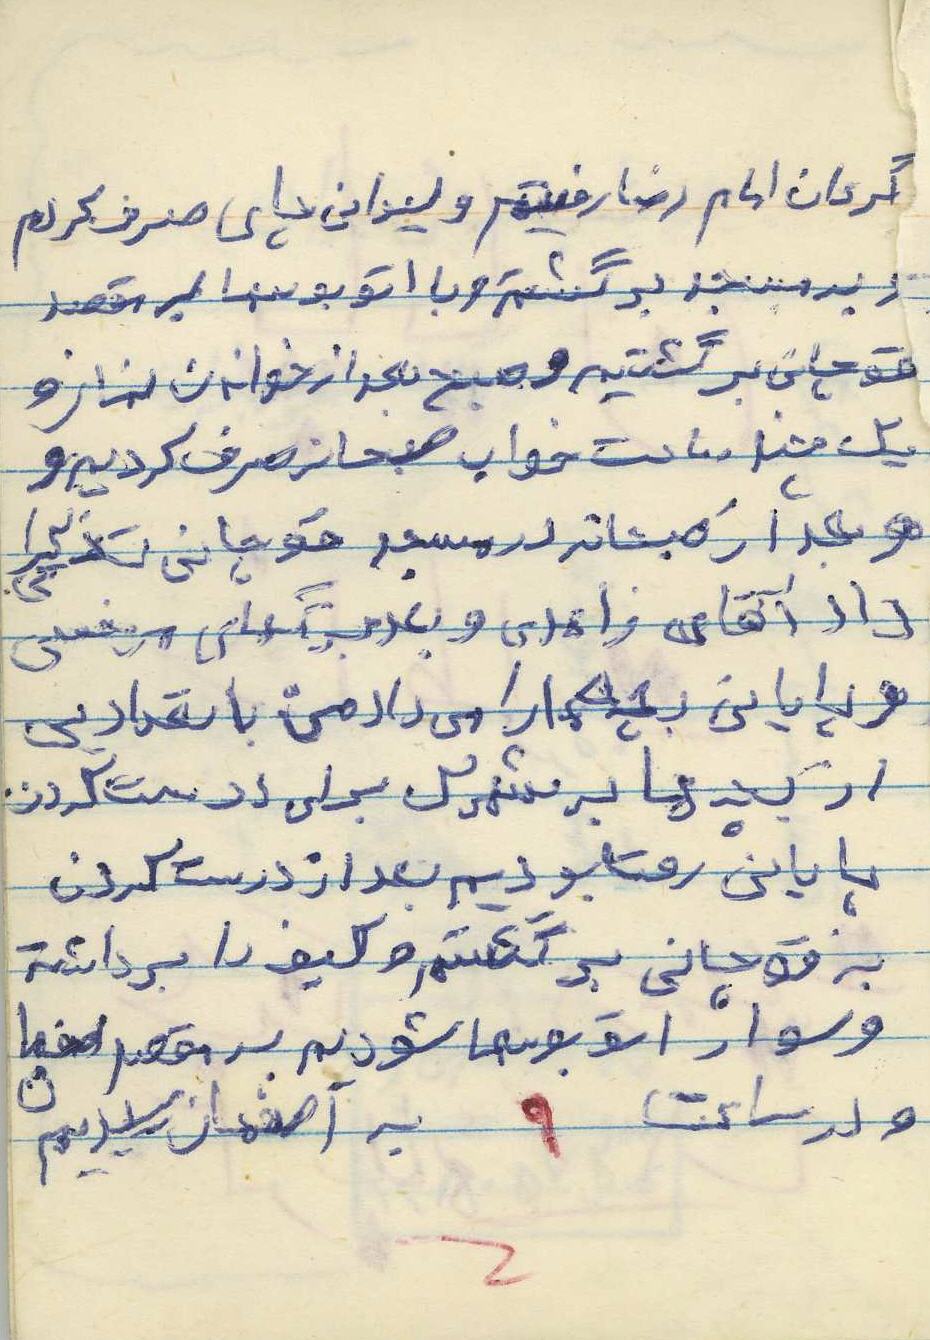 گردان امام رضا رفیتم و لیوانی چای صرف کردم
و به مسجد برگشتم و با اتوبوسها به مقصد
قوچانی برگشتیم و صبح بعد از خواندن نماز و
یک چند ساعت خواب صبحانه صرف کردیم و
و بعد از صبحانه در مسجد قوچانی
داد آقای زاهدی و بعد برگهای مرخصی
و پایانی بچه‌ها را می داد من با تعدادیی
از بچه ها به شهرک برای درست کردن
پایانی رفته بودیم بعد از درست کردن
به قوچانی برگشتم و کیف را برداشته
و سوار اتوبوسها شودیم به مقصد اصفهان
و در ساعت ۹ به اصفهان رسیدیم